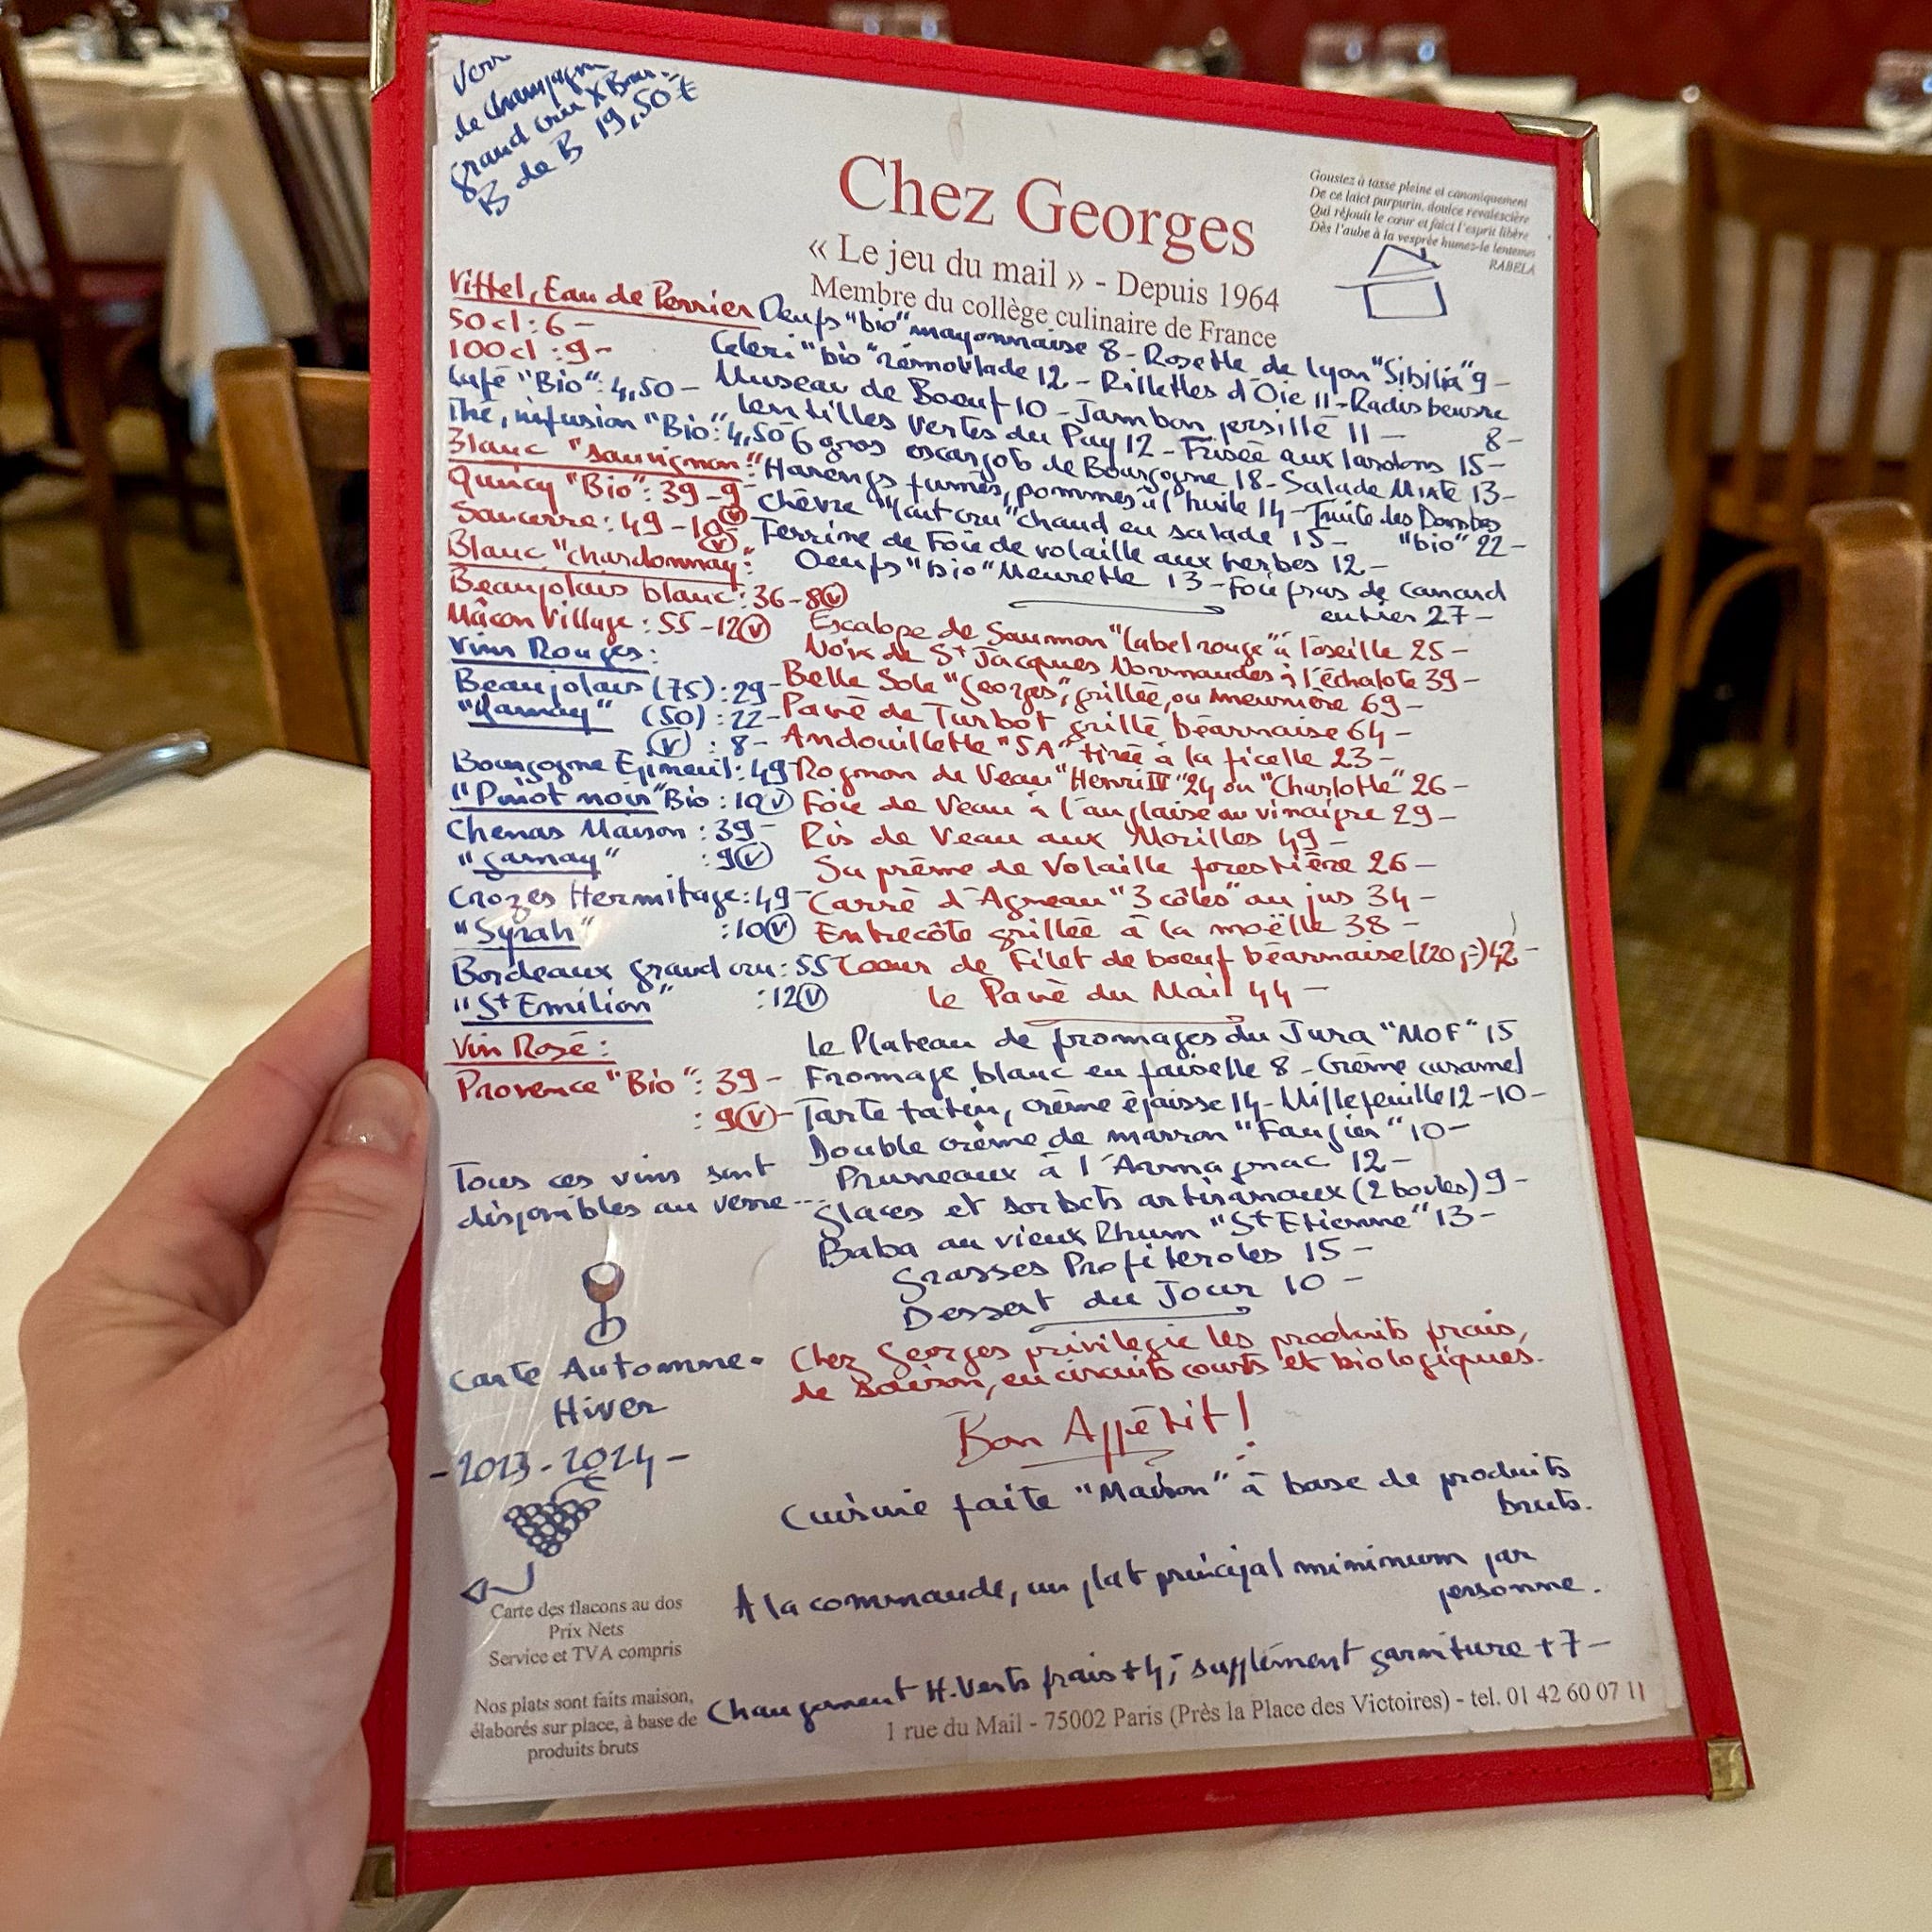 Verre
de Champagne
grand cru
B de B 19,50 €
Chez Georges
« Le jeu du mail » - Depuis 1964
Membre du collège culinaire de France
Goustez à tasse pleine et canoniquement
De ce laict purpurin, doulce revalescière
Qui réjouit le cœur et faict l'esprit libère
Dès l'aube à la vesprée humez-le lentemen
RABELA
Vittel, Eau de Perrier
50 cl : 6 -
100 cl : 9 -
Café "Bio" : 4,50 -
Thé, infusion "Bio" : 4,50
Blanc "Sauvignon" :
Quincy "Bio" : 39 - 9 (V)
Sancerre : 49 - 10 (V)
Blanc "Chardonnay" :
Beaujolais blanc : 36 - 8 (V)
Mâcon Village : 55 - 12 (V)
Vins Rouges :
Beaujolais (75) : 29 -
"Gamay" (50) : 22 -
(V) : 8 -
Bourgogne Epineuil : 49
"Pinot noir" Bio : 10 (V)
Chenas Maison : 39 -
"Gamay" : 9 (V)
Crozes Hermitage : 49 -
"Syrah" : 10 (V)
Bordeaux grand cru : 55
"St Emilion" : 12 (V)
Vin Rosé :
Provence "Bio" : 39 -
: 9 (V) -
Tous ces vins sont
disponibles au verre ---
Carte Automne.
Hiver
- 2023 - 2024 -
Carte des flacons au dos
Prix Nets
Service et TVA compris
Nos plats sont faits maison,
élaborés sur place, à base de
produits bruts
Oeufs "bio" mayonnaise 8 - Rosette de Lyon "Sibilia" 9 -
Céleri "bio" rémoulade 12 - Rillettes d'Oie 11 - Radis beurre
8 -
Museau de Boeuf 10 - Jambon persillé 11 -
Lentilles vertes du Puy 12 - Frisée aux lardons 15 -
6 gros escargots de Bourgogne 18 - Salade Mixte 13 -
Harengs fumés, pommes à l'huile 14 - Truite des Dombes
"bio" 22 -
Chèvre "lait cru" chaud en salade 15 -
Terrine de Foie de volaille aux herbes 12 -
Oeufs "bio" Meurette 13 - Foie gras de Canard
entier 27 -
Escalope de Saumon "label rouge" à l'oseille 25 -
Noix de St Jacques Normandes à l'échalote 39 -
Belle Sole "Georges", grillée, ou meunière 69 -
Pavé de Turbot grillé béarnaise 64 -
Andouillette "5A" tirée à la ficelle 23 -
Rognon de Veau "Henri IV" 24 ou "Charlotte" 26 -
Foie de Veau à l'anglaise au vinaigre 29 -
Ris de Veau aux Morilles 49 -
Suprême de Volaille forestière 26 -
Carré d'Agneau "3 côtes" au jus 34 -
Entrecôte grillée à la moëlle 38 -
Coeur de Filet de boeuf béarnaise (220 gr) 42 -
Le Pavé du Mail 44 -
Le Plateau de fromages du Jura "MOF" 15
Fromage blanc en faisselle 8 - Crème caramel
Tarte tatin, crème épaisse 14 - Millefeuille 12 - 10 -
Double crème de marron "Faugier" 10 -
Pruneaux à l'Armagnac 12 -
Glaces et sorbets artisanaux (2 boules) 9 -
Baba au vieux Rhum "St Etienne" 13 -
Grasses Profiteroles 15 -
Dessert du Jour 10 -
Chez Georges privilégie les produits frais,
de saison, en circuits courts et biologiques.
Bon Appétit !
Cuisine faite "Maison" à base de produits
bruts.
A la commande, un plat principal minimum par
personne.
Changement H. Verts frais + 4,- supplément garniture + 7 -
1 rue du Mail - 75002 Paris (Près la Place des Victoires) - tel. 01 42 60 07 11